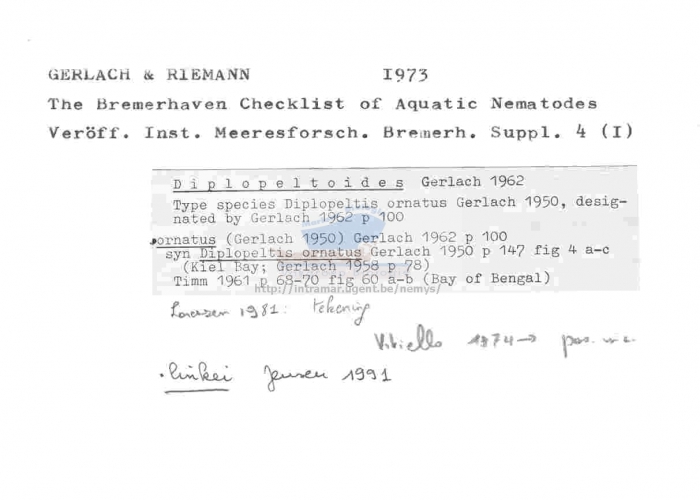 GERLACH & RIEMANN 1973
The Bremerhaven Checklist of Aquatic Nematodes
Veröff. Inst. Meeresforsch. Bremerh. Suppl. 4 (I)
Diplopeltoides Gerlach 1962
Type species Diplopeltis ornatus Gerlach 1950, desig-
nated by Gerlach 1962 p 100
ornatus (Gerlach 1950) Gerlach 1962 p 100
syn Diplopeltis ornatus Gerlach 1950 p 147 fig 4 a-c
(Kiel Bay; Gerlach 1958 p 78)
Timm 1961 p 68-70 fig 60 a-b (Bay of Bengal)
http://intramar.ugent.be/nemys/
1981: tekening
Vitiello 1974→ pos.
·linkei Jensen 1991